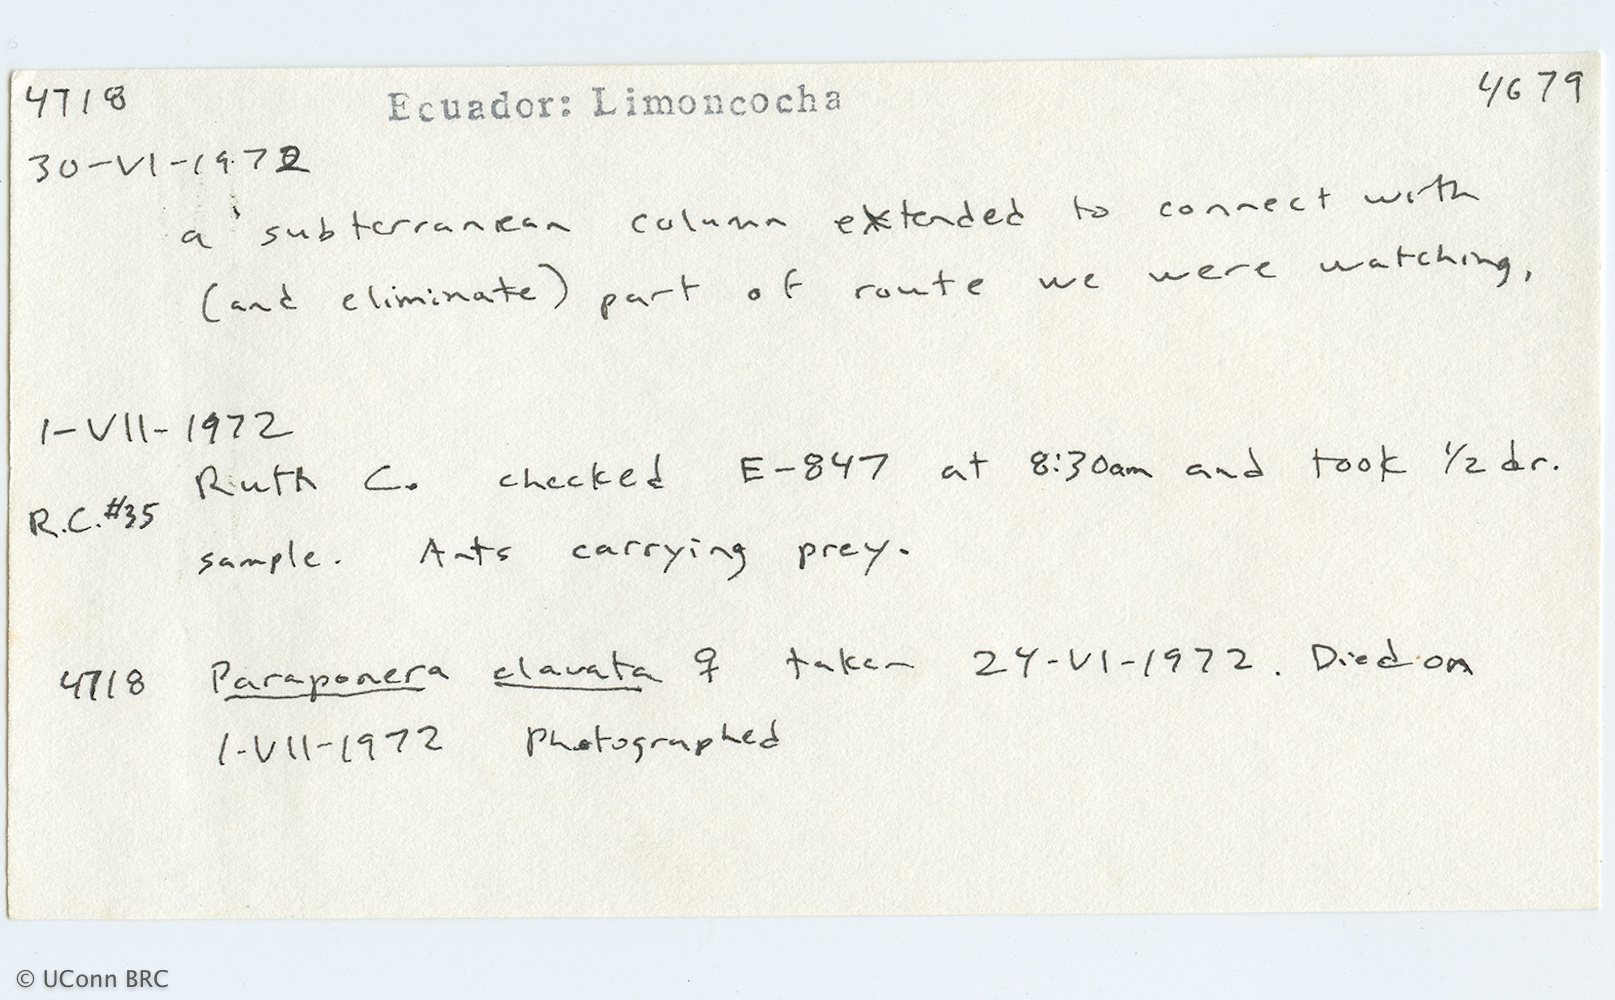 4718 Ecuador: Limoncocha 4679
30-VI-1972
a subterranean column extended to connect with
(and eliminate) part of route we were watching,
1-VII-1972
Ruth C. checked E-847 at 8:30am and took 1/2 dr.
R.C. #35
sample. Ants carrying prey.
4718 Paraponera clavata ♀ taken 24-VI-1972. Died on
1-VII-1972 Photographed
© UConn BRC